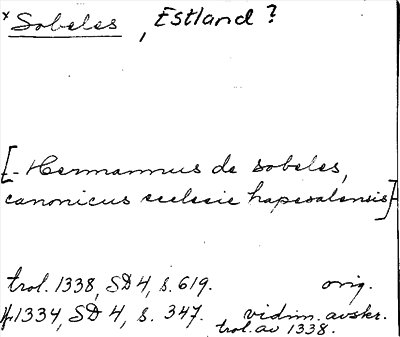 × Sobeles, Estland?
[- Hermannus de Sobeles,
canonicus ecclesie hapesalensis]-
trol. 1338, SD 4, s. 619. orig.
1334, SD 4, s. 347. vidim. avskr.
trol. av 1338.